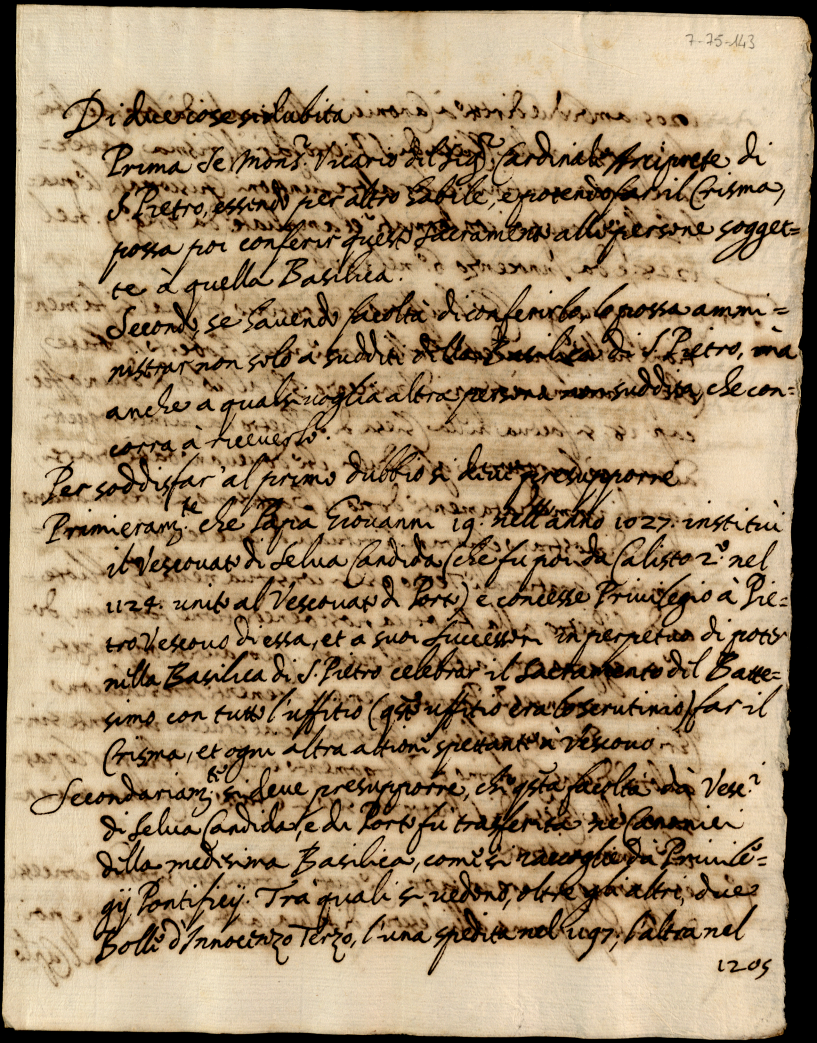 7-75-143
Di due cose si dubita
Prima Se Mons.r Vicario del Sig.r Cardinale Arciprete di
S. Pietro, essendo per altro habile, e potendo far il Crisma,
possa poi conferir questo Sacramento alle persone sogget=
te à quella Basilica.
Secondo se havendo facoltà di conferirlo, lo possa ammi=
nistrar non solo a sudditi della Basilica di S. Pietro, mà
anche a qualsivoglia altra persona non suddita, che con=
corra à riceverlo.
Per soddisfar' al primo dubbio si deve presupporre
Primieram.te che Papa Giovanni 19. nell'anno 1027. instituì
il Vescovato di Selva Candida (che fu poi da Calisto 2.o nel
1124. unito al Vescovato di Porto) e concesse Privilegio à Pie=
tro Vescovo di essa, et a suoi Successori in perpetuo di poter
nella Basilica di S. Pietro celebrar il Sacramento del Batte=
simo con tutto l'uffitio (qsto uffitio era lo scrutinio) far il
Crisma, et ogni altra attione spettante à Vescovo
Secondariam.te si deve presupporre, che qsta facoltà dà Vesc.i
di Selva Candida, e di Porto fu trasferita nè Canonici
della medesima Basilica, come si raccoglie da Privile=
gij Pontificij. Trà quali si vedono, oltre gli altri, due
Bolle d'Innocenzo Terzo, l'una spedita nel 1197, l'altra nel
1205